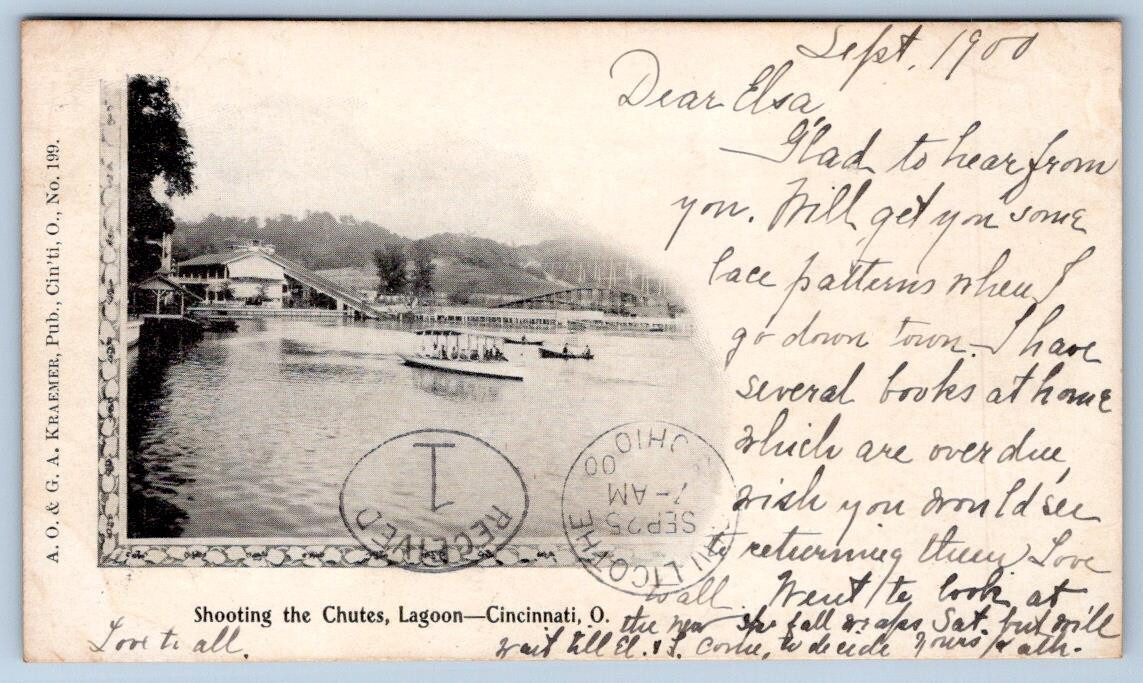 Sept, 1900
Dear Elsa,
Glad to hear from
you. Will get you some
lace patterns when I
go down town. I have
several books at home
which are overdue,
wish you would see
to returning them Love
to all Went to look at
the new fall wraps Sat. but will
wait till El. & I. come, to decide Yours
Love to all.
Shooting the Chutes, Lagoon—Cincinnati, O.
A. O. & G. A. KRAEMER, Pub., Cin'ti, O., No. 199.
RECEIVED
1
CHILLICOTHE OHIO
SEP 25
7-AM
00